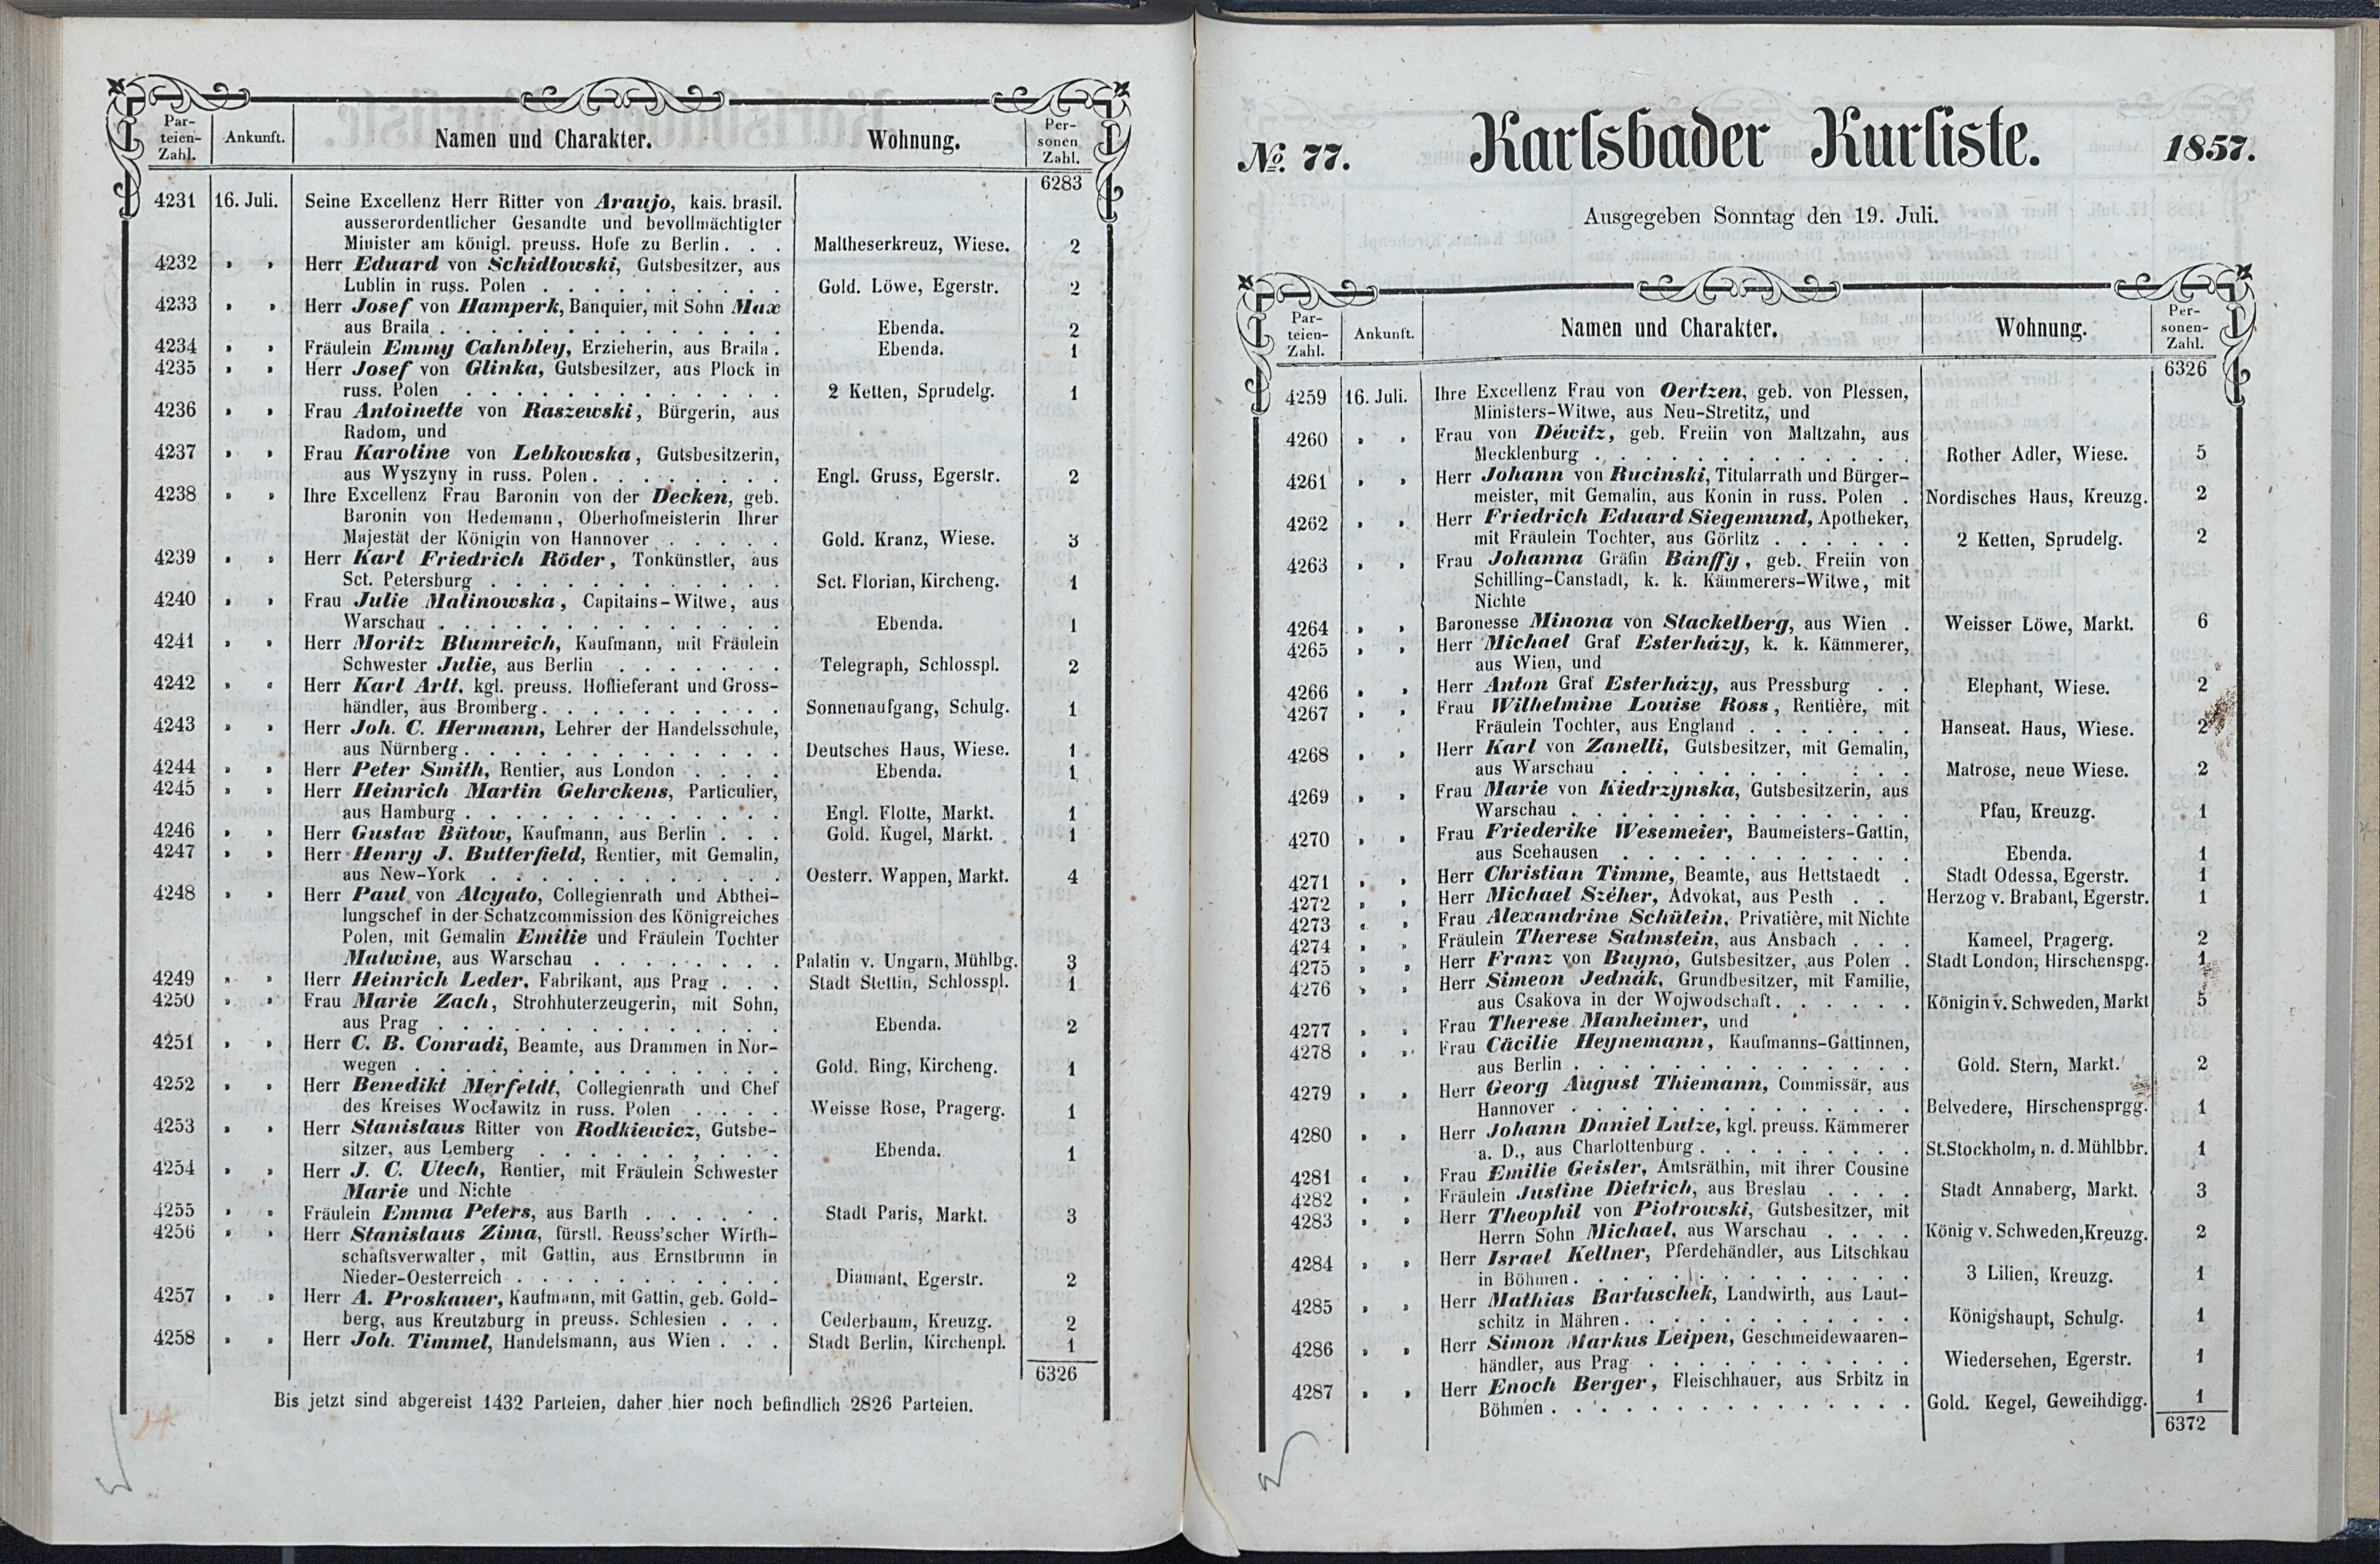 Par-
teien-
Zahl.
Ankunft.
Namen und Charakter.
Wohnung.
Per-
sonen
Zahl.
6283
4231 16. Juli. Seine Excellenz Herr Ritter von Araujo, kais. brasil.
ausserordentlicher Gesandte und bevollmächtigter
Minister am königl. preuss. Hofe zu Berlin . . . Maltheserkreuz, Wiese. 2
4232 » » Herr Eduard von Schidlowski, Gutsbesitzer, aus
Lublin in russ. Polen . . . . . . . . . . Gold. Löwe, Egerstr. 2
4233 » » Herr Josef von Hamperk, Banquier, mit Sohn Max
aus Braila . . . . . . . . . . . . . . Ebenda. 2
4234 » » Fräulein Emmy Cahnbley, Erzieherin, aus Braila . Ebenda. 1
4235 » » Herr Josef von Glinka, Gutsbesitzer, aus Plock in
russ. Polen . . . . . . . . . . . . . 2 Ketten, Sprudelg. 1
4236 » » Frau Antoinette von Raszewski, Bürgerin, aus
Radom, und
4237 » » Frau Karoline von Lebkowska, Gutsbesitzerin,
aus Wyszyny in russ. Polen . . . . . . . . Engl. Gruss, Egerstr. 2
4238 » » Ihre Excellenz Frau Baronin von der Decken, geb.
Baronin von Hedemann, Oberhofmeisterin Ihrer
Majestät der Königin von Hannover . . . . . Gold. Kranz, Wiese. 3
4239 » » Herr Karl Friedrich Röder, Tonkünstler, aus
Sct. Petersburg . . . . . . . . . . . . Sct. Florian, Kircheng. 1
4240 » » Frau Julie Malinowska, Capitains-Witwe, aus
Warschau . . . . . . . . . . . . . . Ebenda. 1
4241 » » Herr Moritz Blumreich, Kaufmann, mit Fräulein
Schwester Julie, aus Berlin . . . . . . . Telegraph, Schlosspl. 2
4242 » « Herr Karl Arlt, kgl. preuss. Hoflieferant und Gross-
händler, aus Bromberg . . . . . . . . . . Sonnenaufgang, Schulg. 1
4243 » » Herr Joh. C. Hermann, Lehrer der Handelsschule,
aus Nürnberg . . . . . . . . . . . . . Deutsches Haus, Wiese. 1
4244 » » Herr Peter Smith, Rentier, aus London . . . . Ebenda. 1
4245 » » Herr Heinrich Martin Gehrckens, Particulier,
aus Hamburg . . . . . . . . . . . . . Engl. Flotte, Markt. 1
4246 » » Herr Gustav Bütow, Kaufmann, aus Berlin . . . Gold. Kugel, Markt. 1
4247 » » Herr Henry J. Butterfield, Rentier, mit Gemalin,
aus New-York . . . . . . . . . . . . Oesterr. Wappen, Markt. 4
4248 » » Herr Paul von Alcyato, Collegienrath und Abthei-
lungschef in der Schatzcommission des Königreiches
Polen, mit Gemalin Emilie und Fräulein Tochter
Malwine, aus Warschau . . . . . . . . Palatin v. Ungarn, Mühlbg. 3
4249 » » Herr Heinrich Leder, Fabrikant, aus Prag . . . Stadt Stettin, Schlosspl. 1
4250 » » Frau Marie Zach, Strohhuterzeugerin, mit Sohn,
aus Prag . . . . . . . . . . . . . . Ebenda. 2
4251 » » Herr C. B. Conradi, Beamte, aus Drammen in Nor-
wegen . . . . . . . . . . . . . . . Gold. Ring, Kircheng. 1
4252 » » Herr Benedikt Merfeldt, Collegienrath und Chef
des Kreises Wocławitz in russ. Polen . . . . Weisse Rose, Pragerg. 1
4253 » » Herr Stanislaus Ritter von Rodkiewicz, Gutsbe-
sitzer, aus Lemberg . . . . . . . . . . Ebenda. 1
4254 » » Herr J. C. Utech, Rentier, mit Fräulein Schwester
Marie und Nichte
4255 » » Fräulein Emma Peters, aus Barth . . . . . . Stadt Paris, Markt. 3
4256 » » Herr Stanislaus Zima, fürstl. Reuss'scher Wirth-
schaftsverwalter, mit Gattin, aus Ernstbrunn in
Nieder-Oesterreich . . . . . . . . . . . Diamant, Egerstr. 2
4257 » » Herr A. Proskauer, Kaufmann, mit Gattin, geb. Gold-
berg, aus Kreutzburg in preuss. Schlesien . . . Cederbaum, Kreuzg. 2
4258 » » Herr Joh. Timmel, Handelsmann, aus Wien . . . Stadt Berlin, Kirchenpl. 1
6326
Bis jetzt sind abgereist 1432 Parteien, daher hier noch befindlich 2826 Parteien.
No. 77. Karlsbader Kurliste. 1857.
Ausgegeben Sonntag den 19. Juli.
Par-
teien-
Zahl.
Ankunft.
Namen und Charakter.
Wohnung.
Per-
sonen-
Zahl.
6326
4259 16. Juli. Ihre Excellenz Frau von Oertzen, geb. von Plessen,
Ministers-Witwe, aus Neu-Stretitz, und
4260 » » Frau von Déwitz, geb. Freiin von Maltzahn, aus
Mecklenburg . . . . . . . . . . . . . Rother Adler, Wiese. 5
4261 » » Herr Johann von Rucinski, Titularrath und Bürger-
meister, mit Gemalin, aus Konin in russ. Polen . Nordisches Haus, Kreuzg. 2
4262 » » Herr Friedrich Eduard Siegemund, Apotheker,
mit Fräulein Tochter, aus Görlitz . . . . . . 2 Ketten, Sprudelg. 2
4263 » » Frau Johanna Gräfin Bánffy, geb. Freiin von
Schilling-Canstadt, k. k. Kämmerers-Witwe, mit
Nichte
4264 » » Baronesse Minona von Stackelberg, aus Wien . Weisser Löwe, Markt. 6
4265 » » Herr Michael Graf Esterházy, k. k. Kämmerer,
aus Wien, und
4266 » » Herr Anton Graf Esterházy, aus Pressburg . . Elephant, Wiese. 2
4267 » » Frau Wilhelmine Louise Ross, Rentière, mit
Fräulein Tochter, aus England . . . . . . . Hanseat. Haus, Wiese. 2
4268 » » Herr Karl von Zanelli, Gutsbesitzer, mit Gemalin,
aus Warschau . . . . . . . . . . . . Matrose, neue Wiese. 2
4269 » » Frau Marie von Kiedrzynska, Gutsbesitzerin, aus
Warschau . . . . . . . . . . . . . . Pfau, Kreuzg. 1
4270 » » Frau Friederike Wesemeier, Baumeisters-Gattin,
aus Seehausen . . . . . . . . . . . . Ebenda. 1
4271 » » Herr Christian Timme, Beamte, aus Hettstaedt . Stadt Odessa, Egerstr. 1
4272 » » Herr Michael Széher, Advokat, aus Pesth . . Herzog v. Brabant, Egerstr. 1
4273 « » Frau Alexandrine Schülein, Privatière, mit Nichte
4274 » » Fräulein Therese Salmstein, aus Ansbach . . . Kameel, Pragerg. 2
4275 » » Herr Franz von Buyno, Gutsbesitzer, aus Polen . Stadt London, Hirschenspg. 1
4276 » » Herr Simeon Jednák, Grundbesitzer, mit Familie,
aus Csakova in der Wojwodschaft . . . . . . Königin v. Schweden, Markt 5
4277 » » Frau Therese Manheimer, und
4278 » » Frau Cäcilie Heynemann, Kaufmanns-Gattinnen,
aus Berlin . . . . . . . . . . . . . . Gold. Stern, Markt. 2
4279 » » Herr Georg August Thiemann, Commissär, aus
Hannover . . . . . . . . . . . . . . Belvedere, Hirschensprgg. 1
4280 » » Herr Johann Daniel Lutze, kgl. preuss. Kämmerer
a. D., aus Charlottenburg . . . . . . . . . St.Stockholm, n. d. Mühlbbr. 1
4281 « » Frau Emilie Geisler, Amtsräthin, mit ihrer Cousine
4282 » » Fräulein Justine Dietrich, aus Breslau . . . . Stadt Annaberg, Markt. 3
4283 » » Herr Theophil von Piotrowski, Gutsbesitzer, mit
Herrn Sohn Michael, aus Warschau . . . . König v. Schweden, Kreuzg. 2
4284 » » Herr Israel Kellner, Pferdehändler, aus Litschkau
in Böhmen . . . . . . . . . . . . . . 3 Lilien, Kreuzg. 1
4285 » » Herr Mathias Bartuschek, Landwirth, aus Laut-
schitz in Mähren . . . . . . . . . . . . Königshaupt, Schulg. 1
4286 » » Herr Simon Markus Leipen, Geschmeidewaaren-
händler, aus Prag . . . . . . . . . . . Wiedersehen, Egerstr. 1
4287 » » Herr Enoch Berger, Fleischhauer, aus Srbitz in
Böhmen . . . . . . . . . . . . . . . Gold. Kegel, Geweihdigg. 1
6372